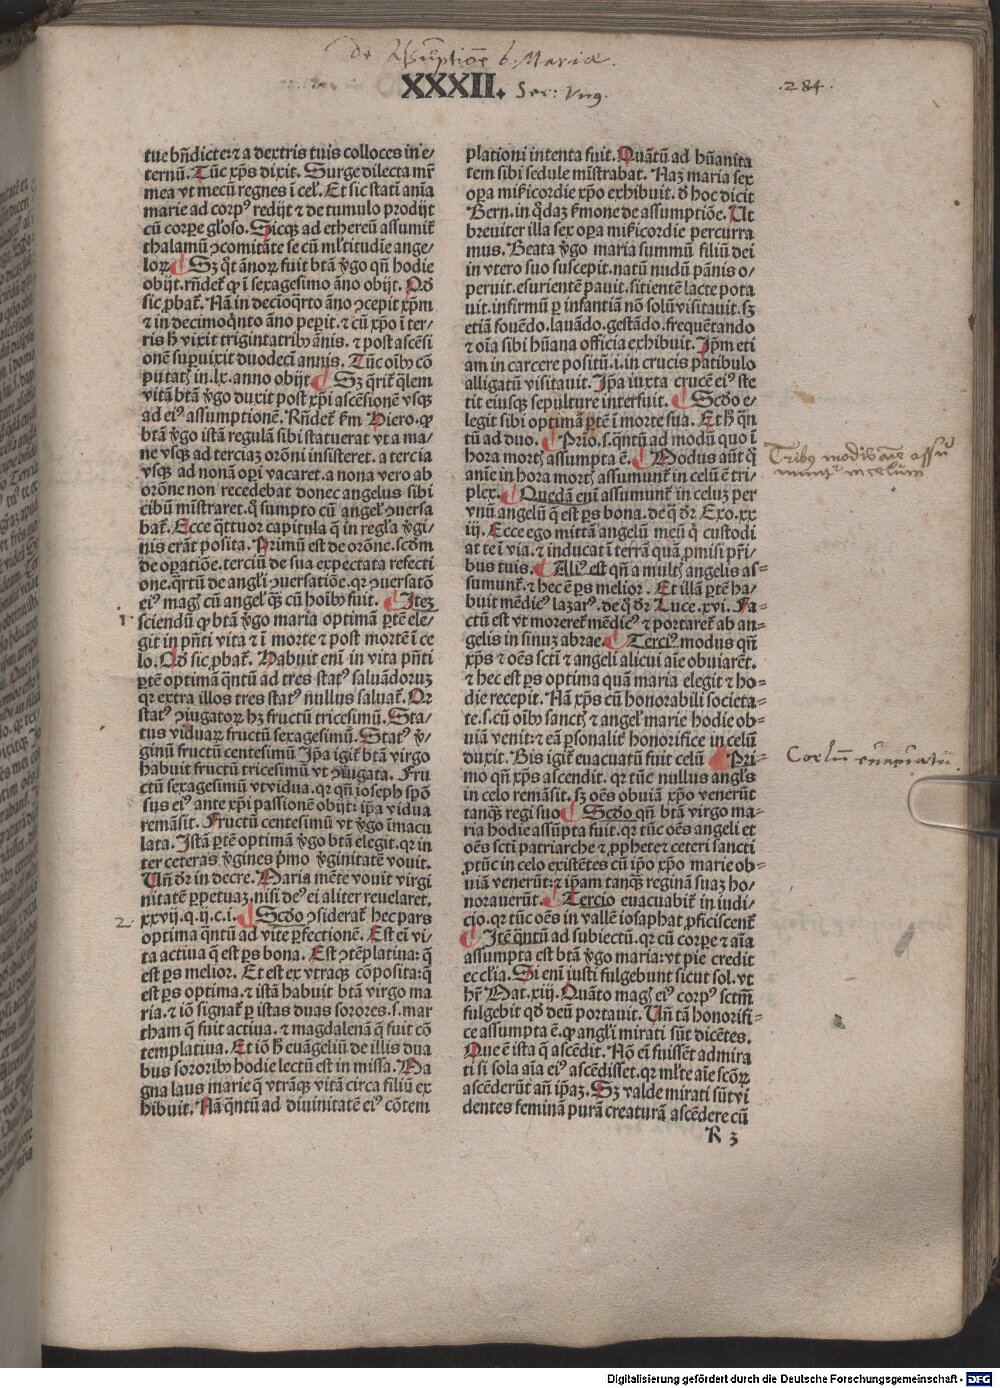 de Assūptiōe b. Mariæ.
XXXII. Ser: Vnꝰ.
.284.
tue bn̄dicte: ⁊ a dextris tuis colloces in e/
ternū. Tūc xp̄s dixit. Surge dilecta mr̄
mea vt mecū regnes ī cel̛. Et sic statī aīa
marie ad corpꝰ redijt ⁊ de tumulo prodijt
cū corpe glōso. Sicqꝫ ad ethereū assumit̛
thalamū ꝯcomitāte se cū ml̛titudīe ange/
loꝝ. ¶ Sꝫ q̄t ānoꝝ fuit btā v̄go qn̄ hodie
obijt. rn̄det̛ ꝙ ī sexagesimo āno obijt. Qđ
sic ꝓbat̛. Nā in decīoq̄rto āno ꝯcepit xp̄m
⁊ in decimoq̄nto āno pep̄it. ⁊ cū xp̄o ī ter/
ris h̄ vixit trigintatribꝰ ānis. ⁊ post ascēsi
onē suꝑuixit duodecī annis. Tūc oībꝰ cō
putat̛ in .lx. anno obijt ¶ Sꝫ q̄rit̛ q̄lem
vitā btā v̄go duxit post xp̄i ascēsionē vsqꝫ
ad eiꝰ assumptionē. Rn̄det̛ ẜm Piero. ꝙ
btā v̄go istā regulā sibi statuerat vt a ma/
ne vsqꝫ ad terciaꝫ orōni insisteret. a tercia
vsqꝫ ad nonā opī vacaret. a nona vero ab
orōne non recedebat donec angelus sibi
cibū mīstraret. q̄ sumpto cū angel̛ ꝯuersa
bat̛. Ecce q̄ttuor capitula q̄ in regl̛a v̄gi/
nis erāt posita. Primū est de orōne. scđm
de oꝑatiōe. terciū de sua expectata refecti
one. q̄rtū de angl̛i ꝯuersatiōe. qꝛ ꝯuersatō
eiꝰ magꝭ cū angel̛ q̄ꝫ cū hoībꝰ fuit. ¶ Iteꝫ
1. sciendū ꝙ btā v̄go maria optimā ꝑtē ele/
git in pn̄ti vita ⁊ ī morte ⁊ post mortē ī ce
lo. Qđ sic ꝓbat̛. Habuit enī in vita pn̄ti
ꝑtē optimā q̄ntū ad tres statꝰ saluādoruꝫ
qꝛ extra illos tres statꝰ nullus saluat̛. Or
statꝰ ꝯiugatoꝝ hꝫ fructū tricesimū. Sta/
tus viduaꝝ fructū sexagesimū. Statꝰ v̄/
ginū fructū centesimū Ip̄a igit̛ btā virgo
habuit fructū tricesimū vt ꝯiugata. Fru
ctū sexagesimū vt vidua. qꝛ qn̄ ioseph spō
sus eiꝰ ante xp̄i passionē obijt: ip̄a vidua
remāsit. Fructū centesimū vt v̄go īmacu
lata. Istā ꝑtē optimā v̄go btā elegit. qꝛ in
ter ceteras v̄gines p̄mo v̄ginitatē vouit.
Vn̄ dr̄ in decre. Maria mēte vouit virgi
nitatē ꝑpetuaꝫ. nisi deꝰ ei aliter reuelaret.
2. xxvij. q. ij. c. i. ¶ Scđo ꝯsiderat̛ hec pars
optima q̄ntū ad vite ꝑfectionē. Est ei̅ vi/
ta actiua q̄ est ꝑs bona. Est ꝯtēplatiua: q̄
est ꝑs melior. Et est ex vtraqꝫ cōposita: q̄
est ꝑs optima. ⁊ istā habuit btā virgo ma
ria. ⁊ iō signat̛ ꝑ istas duas sorores. s. mar
tham q̄ fuit actiua. ⁊ magdalenā q̄ fuit cō
templatiua. Et iō h̄ euāgeliū de illis dua
bus sororibꝰ hodie lectū est in missa. Ma
gna laus marie q̄ vtrāqꝫ vitā circa filiū ex
hibuit. Nā q̄ntū ad diuinitatē eiꝰ cōtem
plationi intenta fuit. Quātū ad hūanita
tem sibi sedule mīstrabat. Naꝫ maria sex
oꝑa mīẜicordie xp̄o exhibuit. đ hoc dicit
Bern. in q̄daꝫ ẜmone de assumptiōe. Ut
breuiter illa sex oꝑa miẜicordie percurra
mus. Beata v̄go maria summū filiū dei
in vtero suo suscepit. natū nudū pānis o/
peruit. esurientē pauit. sitientē lacte pota
uit. infirmū ꝑ infantiā nō solū visitauit. sꝫ
etiā fouēdo. lauādo. gestādo. frequētando
⁊ oīa sibi hūana officia exhibuit. Ip̄m eti
am in carcere positū .i. in crucis patibulo
alligatū visitauit. Ip̄a iuxta crucē eiꝰ ste
tit eiusqꝫ sepulture interfuit. ¶ Scđo e/
legit sibi optimā ꝑtē ī morte sua. Et h̄ q̄n
tū ad duo. ¶ Prio. s. q̄ntū ad modū quo ī
hora mort̛ assumpta ē. ¶ Modus aūt q̄
anīe in hora mort̛ assumunt̛ in celū ē tri/
plex. ¶ Quedā enī assumunt̛ in celuꝫ per
vnū angelū q̄ est ꝑs bona. de q̄ dr̄ Exo. xx
iij. Ecce ego mittā angelū meū q̄ custodi
at te ī via. ⁊ inducat ī terrā quā ꝓmisi pr̄i/
bus tuis. ¶ Aliꝰ est qn̄ a mult̛ angelis as/
sumunt̛. ⁊ hec ē ꝑs melior. Et illā ꝑtē ha/
buit mēdicꝰ lazarꝰ. de q̄ dr̄ Luce. xvi. Fa/
ctū est vt moreret̛ mēdicꝰ ⁊ portaret̛ ab an/
gelis in sinuꝫ abrae. ¶ Terciꝰ modus qn̄
xp̄s ⁊ oēs scti ⁊ angeli alicui aīe obuiarēt.
⁊ hec est ꝑs optima quā maria elegit ⁊ ho/
die recepit. Nā xp̄s cū honorabili societa/
te. s. cū oībꝰ sanct̛ ⁊ angel̛ marie hodie ob/
uiā venit: ⁊ eā ꝑsonalit̛ honorifice in celū
duxit. Bis igit̛ euacuatū fuit celū ¶ Pri/
mo qn̄ xp̄s ascendit. qꝛ tūc nullus angl̛s
in celo remāsit. sꝫ oēs obuiā xp̄o venerūt
tanqꝫ regi suo ¶ Scđo qn̄ btā virgo ma/
ria hodie assūpta fuit. qꝛ tūc oēs angeli et
oēs scti patriarche ⁊ ꝓphete ⁊ ceteri sancti
ꝓtūc in celo existētes cū ip̄o xp̄o marie ob/
uiā venerūt: ⁊ ip̄am tanqꝫ reginā suaꝫ ho/
norauerūt. ¶ Tercio euacuabit̛ in iudi/
cio. qꝛ tūc oēs in vallē iosaphat ꝓficiscent̛
¶ Itē q̄ntū ad subiectū. qꝛ cū corpe ⁊ aīa
assumpta est btā v̄go maria: vt pie credit
eccl̛ia. Si enī iusti fulgebunt sicut sol. vt
hr̄ Mat. xiij. Quāto magꝭ eiꝰ corpꝰ sctm̄
fulgebit qđ deū portauit. Vn̄ tā honorifi/
ce assumpta ē. ꝙ angl̛i mirati sūt dicētes.
Que ē ista q̄ ascēdit. Nō ei̅ fuissēt admira
ti si sola aīa eiꝰ ascēdisset. qꝛ ml̛te aīe scōꝝ
ascēderūt añ ip̄aꝫ. Sꝫ valde mirati sūt vi
dentes feminā purā creaturā ascēdere cū
R 3
Tribꝰ modis aīe assu
muntʳ in celum
Coelū euacuatū.
Digitalisierung gefördert durch die Deutsche Forschungsgemeinschaft - DFG